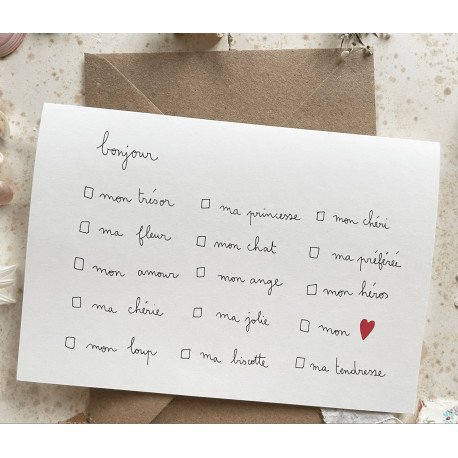 bonjour
☐ mon trésor ☐ ma princesse ☐ mon chéri
☐ ma fleur ☐ mon chat ☐ ma préférée
☐ mon amour ☐ mon ange ☐ mon héros
☐ ma chérie ☐ ma jolie ☐ mon ♥
☐ mon loup ☐ ma biscotte ☐ ma tendresse